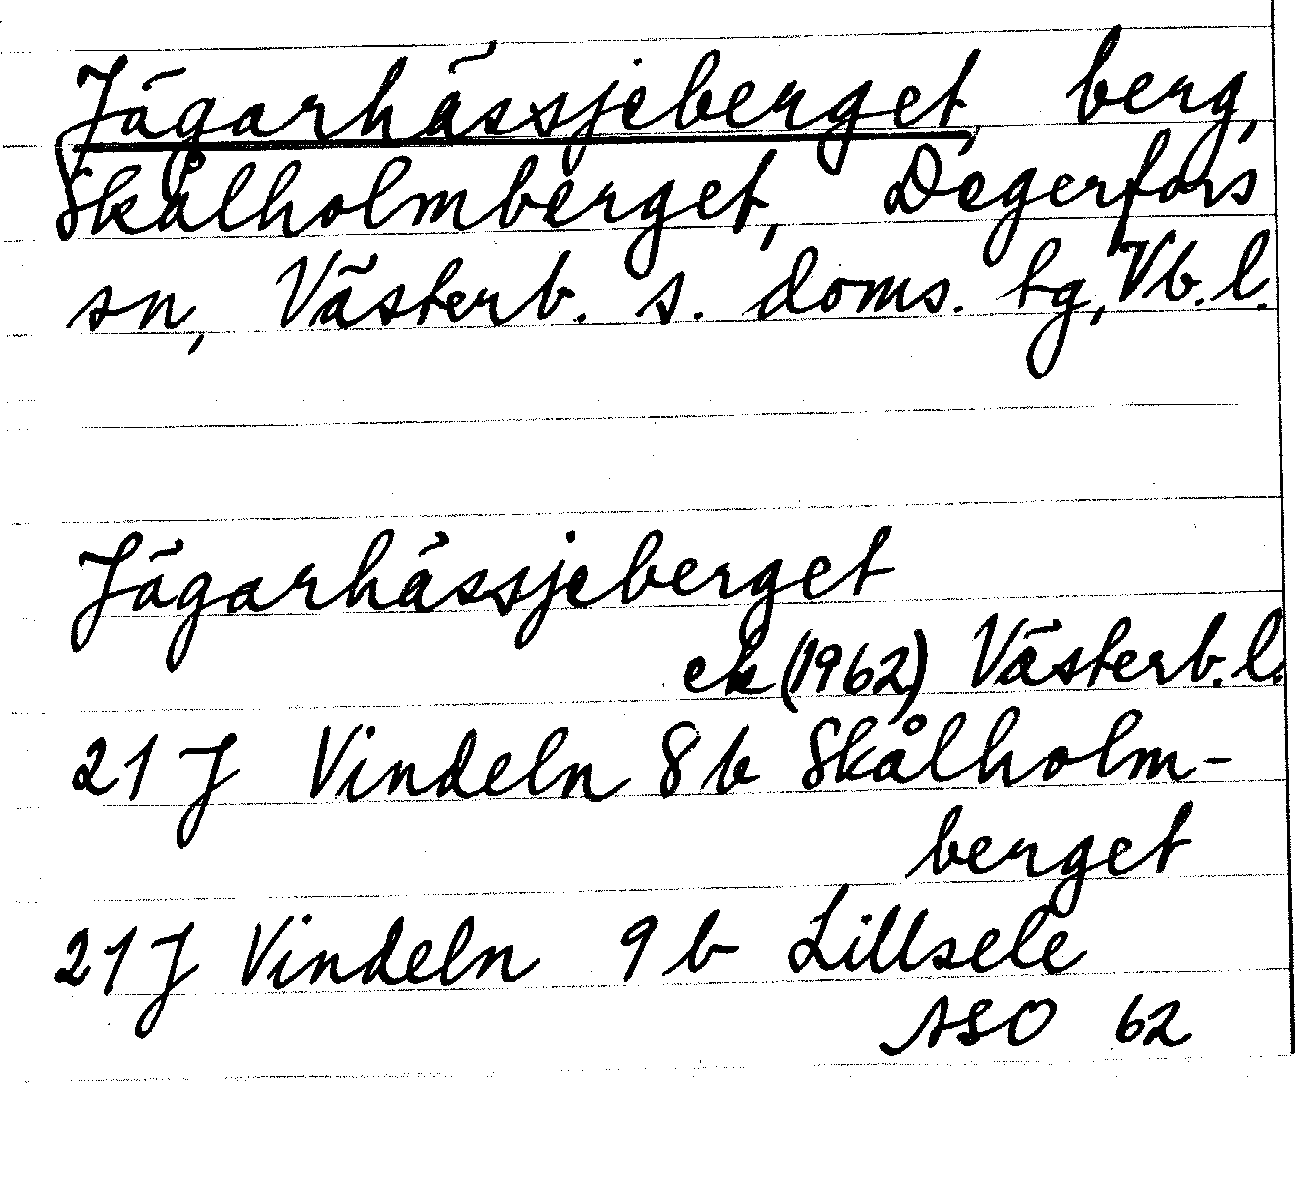 Jägarhässjeberget, berg,
Skålholmberget, Degerfors
sn, Västerb. s. doms. tg, Vb. l.
Jägarhässjeberget
ek (1962) Västerb. l.
21 J Vindeln 8 b Skålholm-
berget
21 J Vindeln 9 b Lillsele
ASO 62